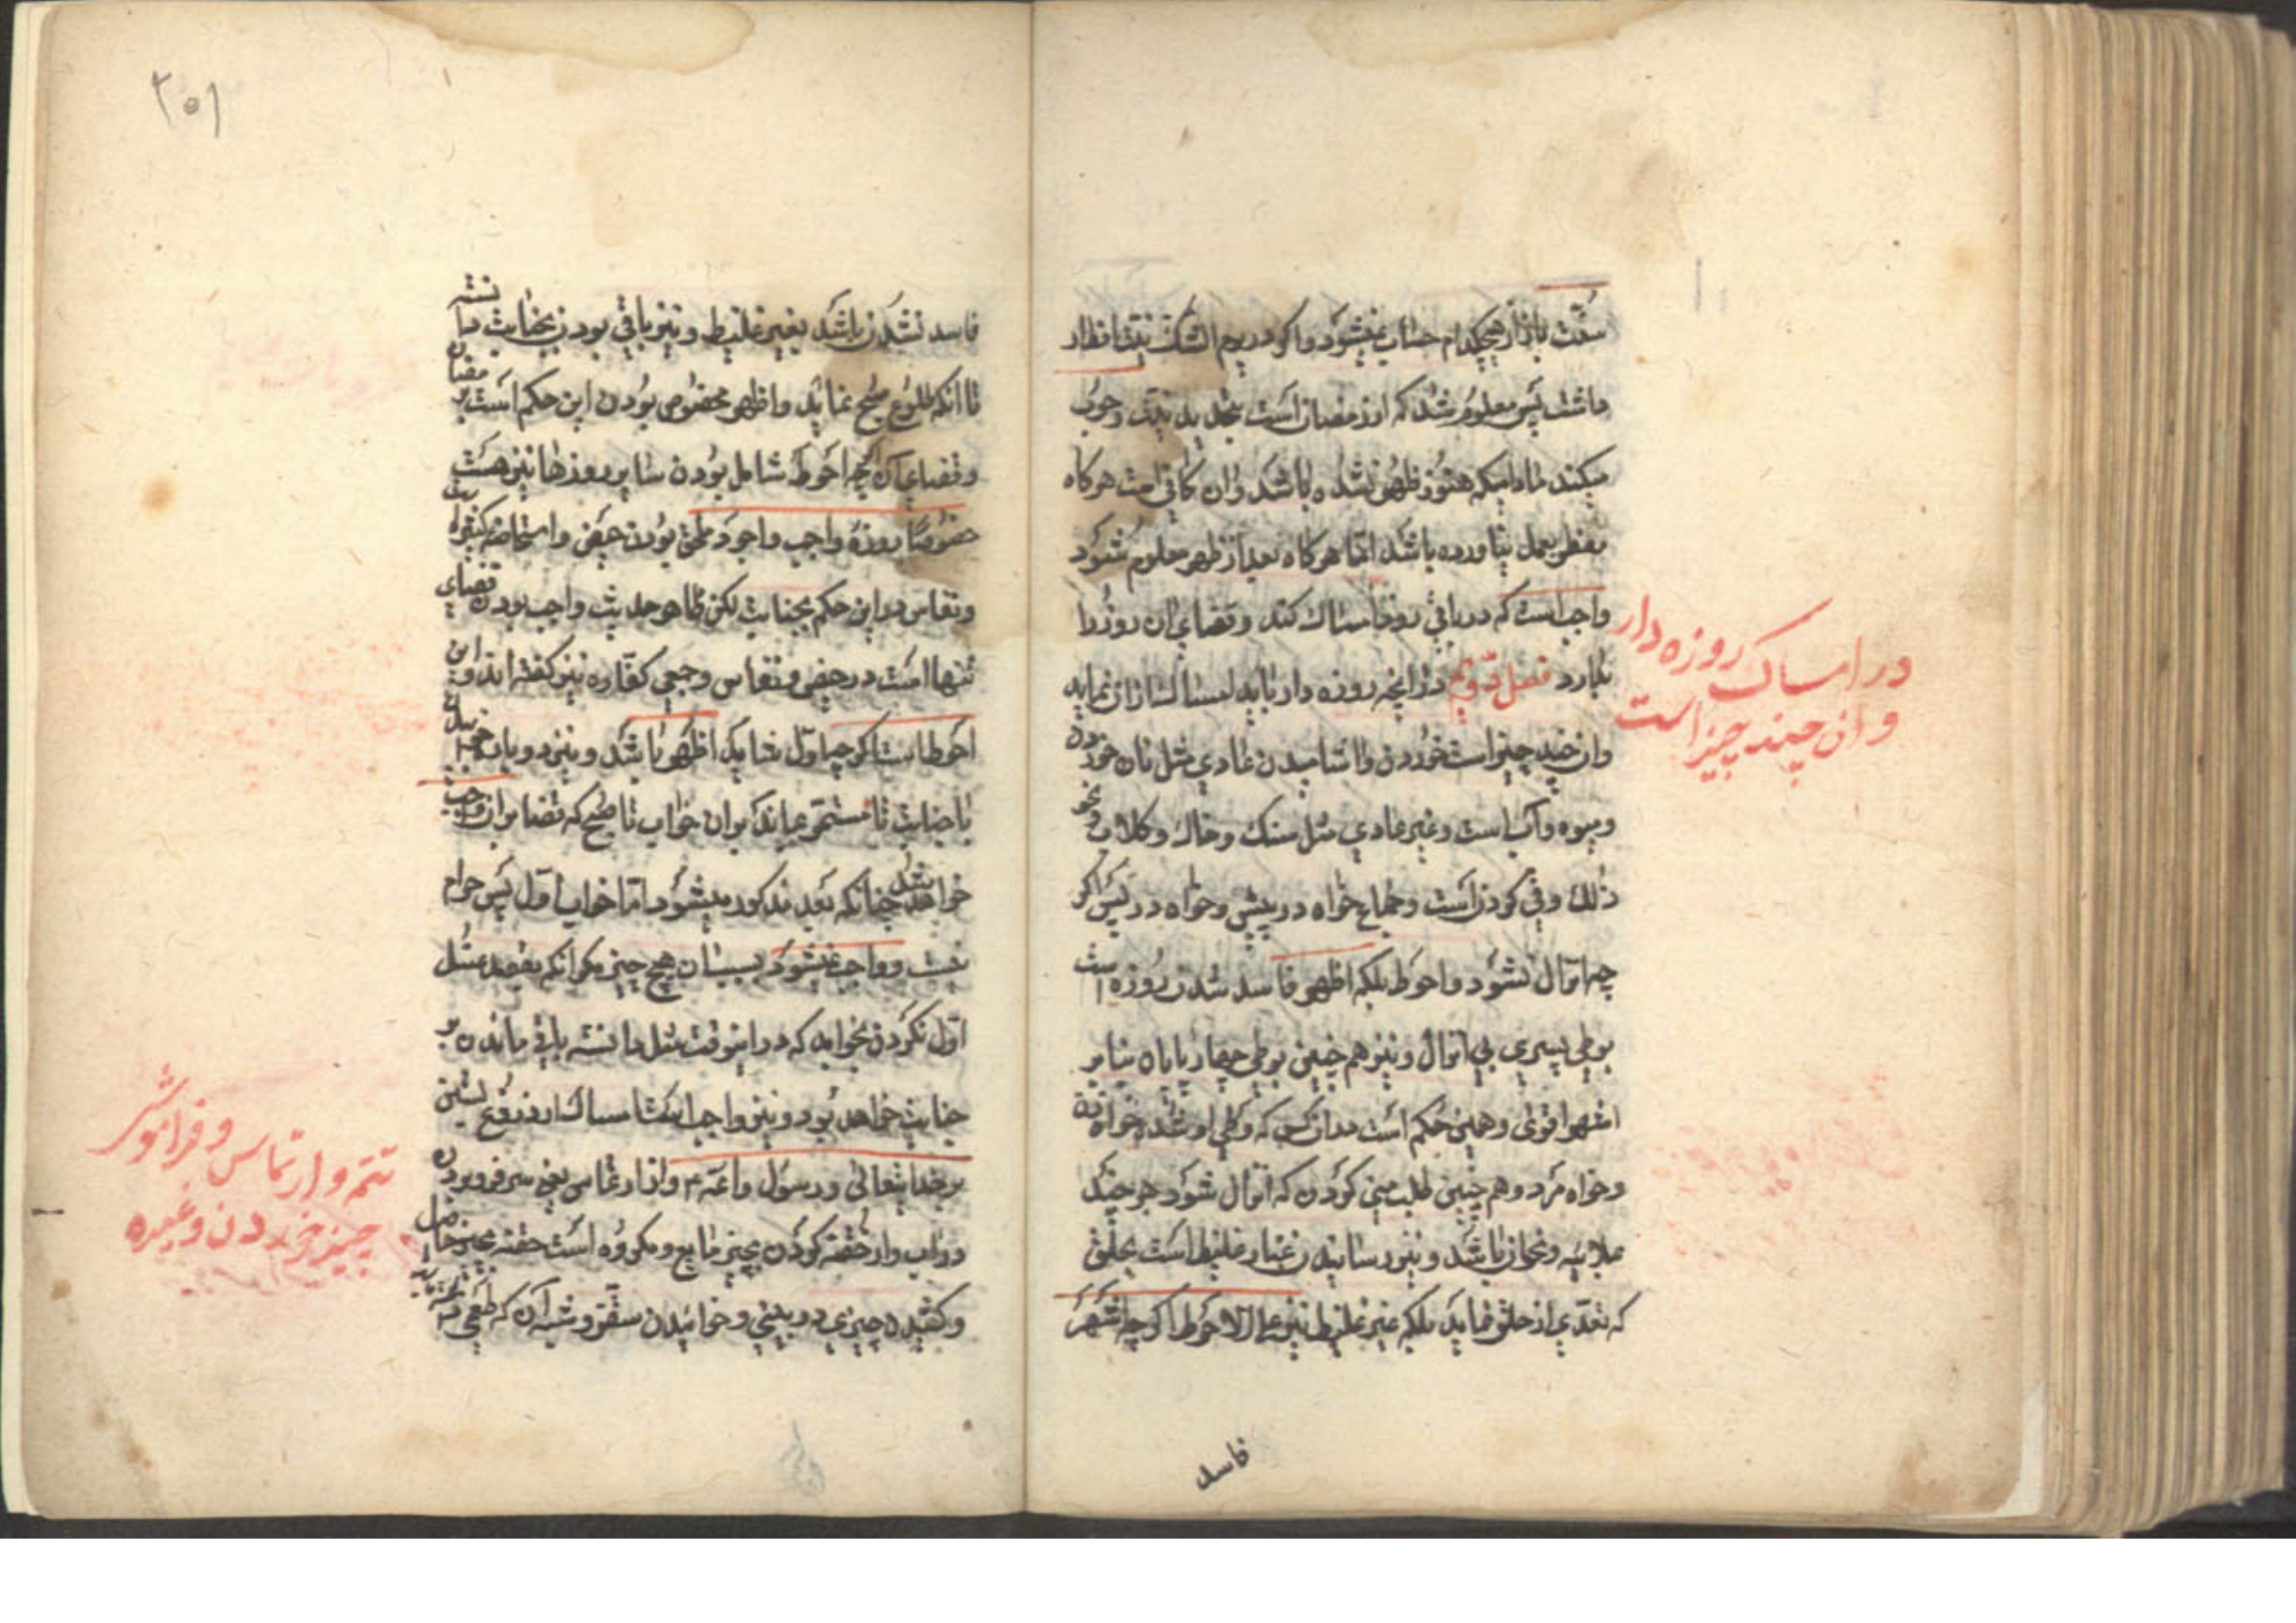 سنّت باز از هیچکدام حساب نمیشود و اکر در یوم الشک نیت افطار
داشت پس معلوم شد که از رمضان است تجدید نیّت وجوب
میکند مادامیکه هنوز ظهر نشده باشد و ان کافی است هرکاه
مفطر بعمل نیاورده باشد امّا هرکاه بعد از ظهر معلوم شود
واجب است که در باقی روز امساک کند و قضای ان روز را
بکیرد فصل دویّم در آنچه روزه دار باید امساک از ان نماید
در امساک روزه دار
و ان چند چیز است
وان چند چیز است خوردن و اشامیدن عادی مثل نان خوردن
ومیوه و آب است و غیر عادی مثل سنک و خاک و کلاب و نحو
ذلک وقی کردن است و جماع خواه در پیش و خواه در پس اکر
چه انزال نشود و احوط بلکه اظهر فاسد شدن روزه است
بوطی پسری بی انزال و نیز هم چنین بوطی چهار پایان بنا بر
اشهر اقوی و همین حکم است بدان کس که وطی او شده خواه زن
وخواه مرد و هم چنین طلب منی کردن که انزال شود هر چند
بملاعبه و نحو ان باشد و نیز رسانیدن غبار غلیظ است بحلق
که تعدّی از حلق نماید بلکه غیر غلیظ نیز علی الاحوط اکر چه اشهر
فاسد
۳۵۱
فاسد نشدن باشد بغیر غلیظ و نیز باقی بودن بجنابت دانسته
تا انکه طلوع صبح نماید و اظهر مخصوص بودن این حکم است برمضان
و قضای آن اکرچه احوط شامل بودن سایر روزها نیز هست
خصوصا روزه واجب و احوط ملحق بودن حیض و استحاضه کثیره
و نفاس در این حکم بجنابت لکن ظاهر حدیث واجب بودن قضای
تنها است در حیض و نفاس و جمعی کفّاره نیز کفته اند و این
احوط است اکرچه اوّل شاید اظهر باشد و نیز دوباره خوابیدن
با جنابت تا مستمر بماند بران خواب تا صبح که قضا بران واجب
خواهد شد چنانکه بعد مذکور میشود امّا خواب اوّل پس حرام
نیست و واجب نمیشود بسبب ان هیچ چیز مکر انکه بقصد غسل
اوّل نکردن بخوابد که در اینوقت مثل دانسته باقی ماندن بر
جنابت خواهد بود و نیز واجب است امساک از دروغ بستن
بر خدایتعالی و رسول و ائمه ع و از ارتماس یعنی سر فرو بردن
در اب و از حقنه کردن بچیز مایع و مکروه است حقنه بچیز جامد
و کشیدن چیزی در بینی و خوائیدن سقّز و شبه آن که طعمی
تتمّه و ارتماس و فراموش
چیز خوردن و غیره